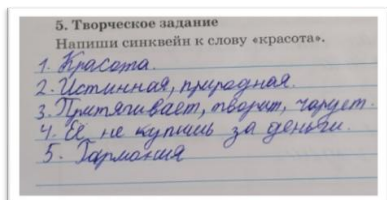 5. Творческое задание
Напиши синквейн к слову «красота».
1. Красота.
2. Истинная, природная.
3. Притягивает, творит, чарует.
4. Её не купишь за деньги.
5. Гармония